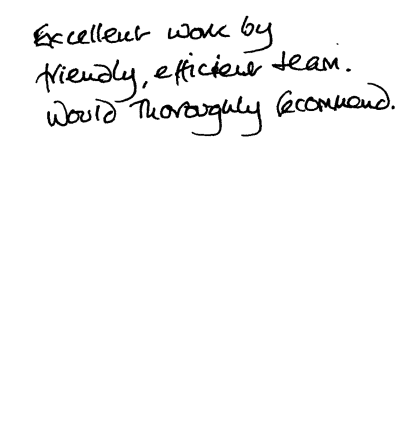 Excellent work by
friendly, efficient team.
Would Thoroughly recommend.